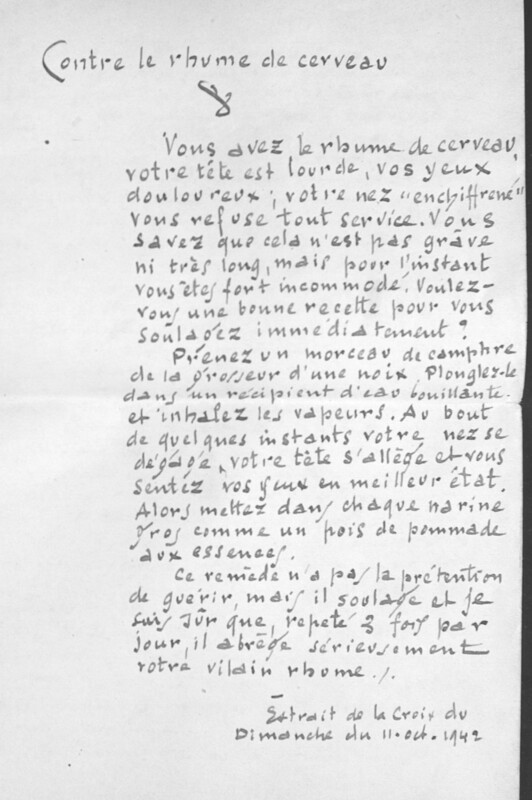 Contre le rhume de cerveau
Vous avez le rhume de cerveau,
votre tête est lourde, vos yeux
douloureux ; votre nez "enchiffrené"
vous refuse tout service. Vous
savez que cela n'est pas grâve
ni très long, mais pour l'instant
vous êtes fort incommodé. Voulez-
vous une bonne recette pour vous
soulagez immédiatement ?
Prenez un morceau de camphre
de la grosseur d'une noix. Plonglez-le
dans un récipient d'eau bouillante.
et inhalez les vapeurs. Au bout
de quelques instants votre nez se
dégage, votre tête s'allège et vous
sentez vos yeux en meilleur état.
Alors mettez dans chaque narine
gros comme un pois de pommade
aux essences.
Ce remède n'a pas la prétention
de guérir, mais il soulage et je
suis sûr que, repeté 3 fois par
jour, il abrège sérieusement
votre vilain rhume ./.
Extrait de la Croix du
Dimanche du 11. oct. 1942